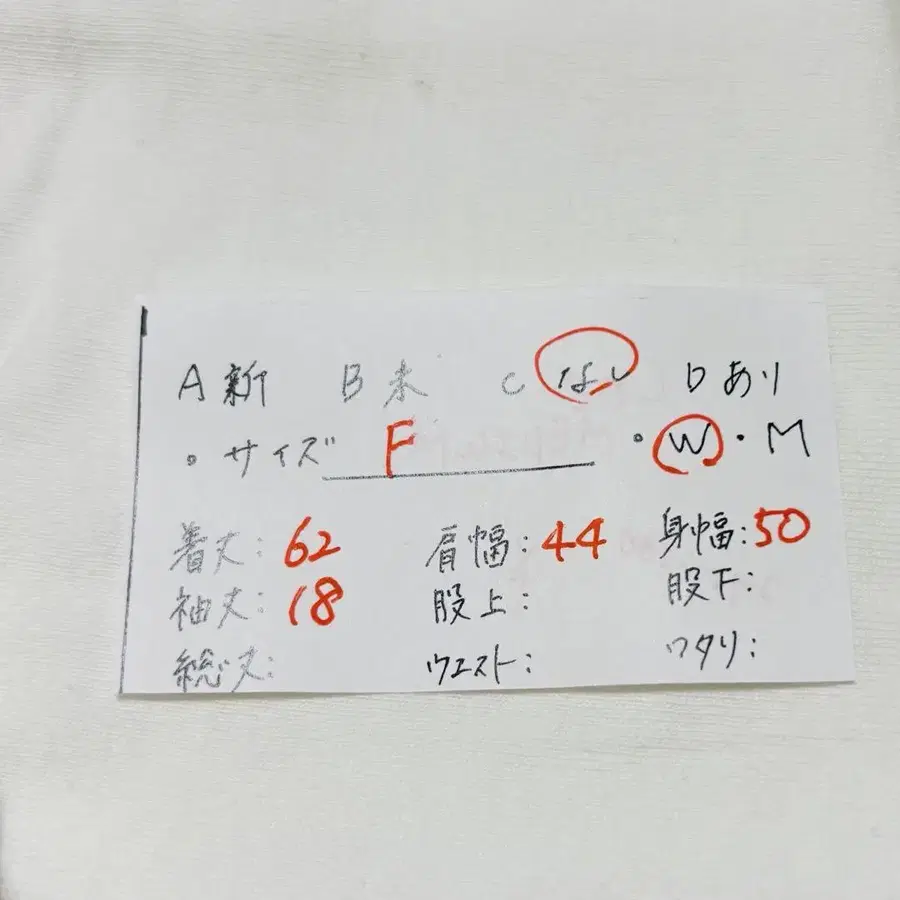 A 新 B 未 C なし D あり
・サイズ F ・W・M
着丈: 62 肩幅: 44 身幅: 50
袖丈: 18 股上: 股下:
総丈: ウエスト: ワタリ: